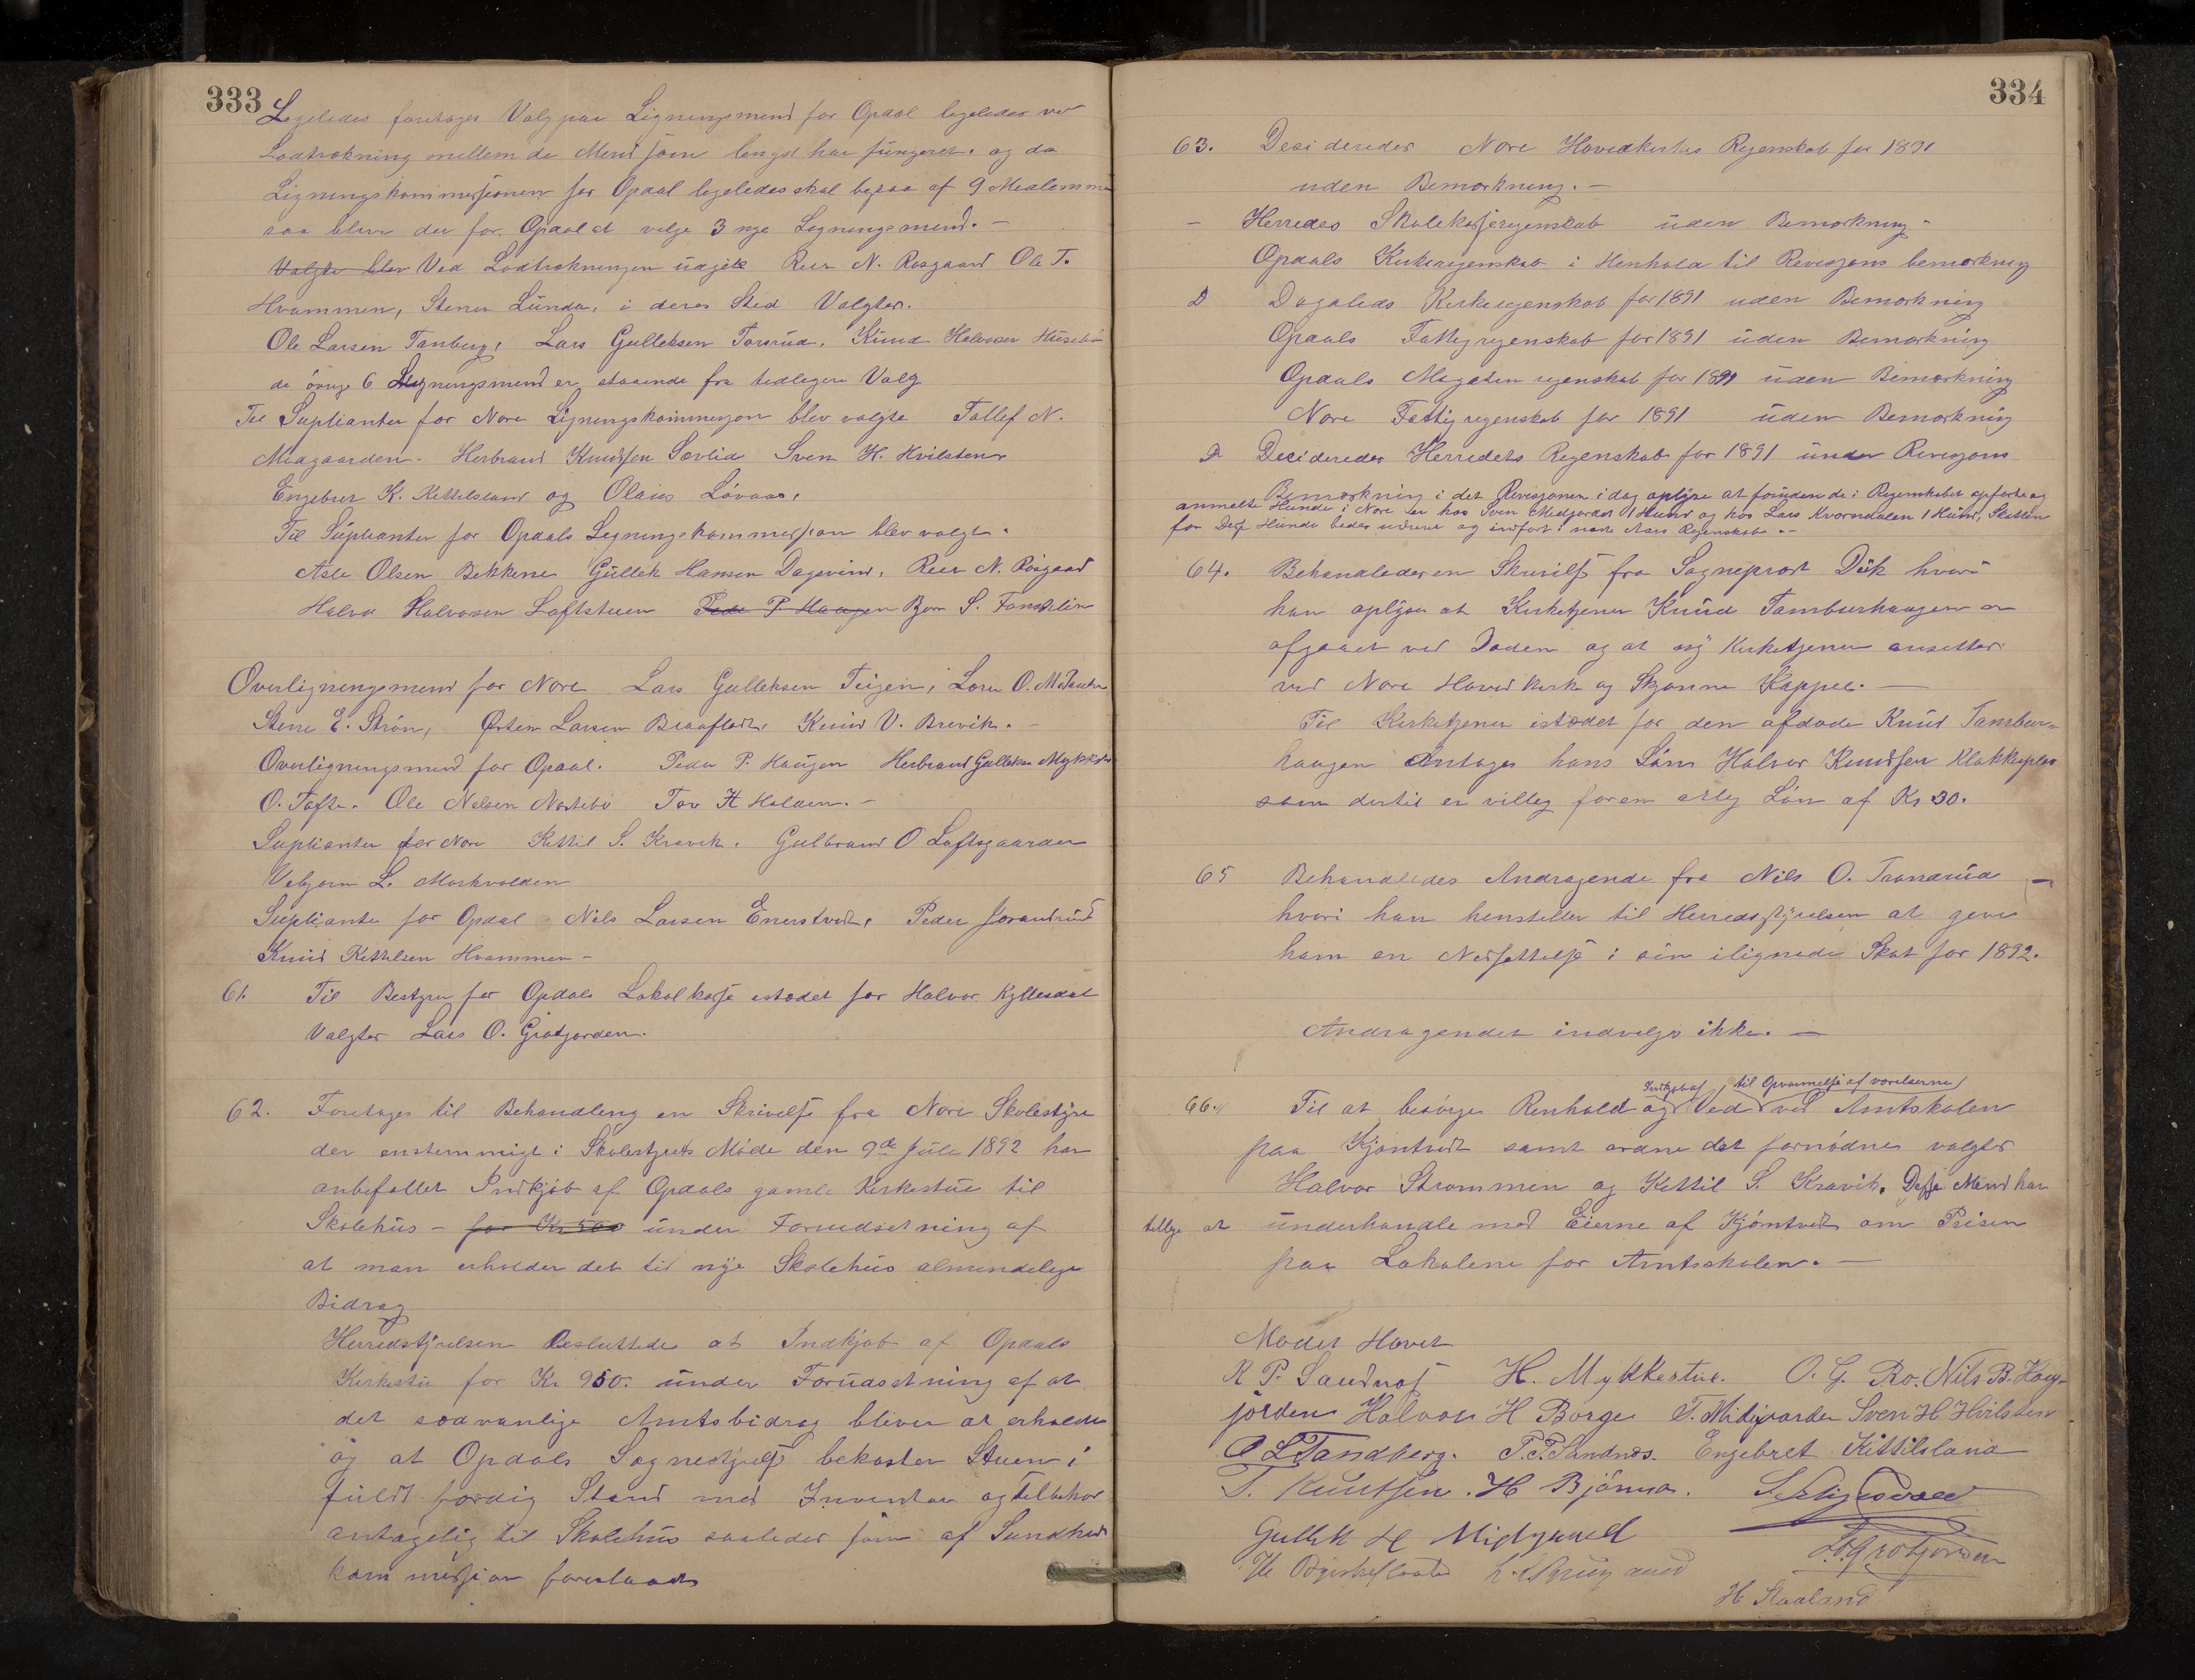 333
Ligeledes foretages Valg paa Ligningsmend for Opdal ligeledes ved
Lodtrækning mellem de Mend som lengst har fungeret. og da
Ligningskommissionen for Opdal ligeledes skal bestaa af 9 Medlemme
saa bliver der for Opdal at velge 3 nye Ligningsmend. -
Valgte blev Ved Lodtrækningen udgik Reer N. Rosgaard Ole T.
Hvammen, Stener Lunda, i deres Sted Valgtes.
Ole Larsen Tanberg, Lars Gulleksen Torsrud, Knud Halvosen Husebø
de øvrige 6 Ligningsmend er staaende fra tidligere Valg
Til Suplianter for Nore Ligningskommisjon blev valgte Tollef N.
Midgaarden. Herbrand Knudsen Sevlid Sven H. Hvilsten
Engebret K. Kettilsland og Olaus Løvaas,
Til Suplianter for Opdals Ligningskommission blev valgt.
Asle Olsen Bekkene Gullek Hansen Dagevind, Reer N. Rosgaad
Halvor Halvosen Loftstuen Peder P Haugen Bjørn S. Fønsetlin
Overligningsmend for Nore Lars Gulleksen Teigen,
Stene E. Strøn, Østen Larsen Braafladt, Knud V. Brevik. -
Overligningsmend for Opdal. Peder P. Haugen Herbrand Gulleksen Mykkstu
O. Tofte. Ole Nelsen Nørstebø Tov H Holden. -
Suplianter for Nore Kettil S. Kravik. Gulbrand O Loftsgaarden
Vebjørn L. Morkvolden
Suplianter for Opdal Nils Larsen Enerstvedt, Peder Jorandrud
Knud Kettilsen Hvammen -
61. Til Bestyrer for Opdals Lokalkasse istedet for Halvor Kyllesdal
Valgtes Lars O. Grøtjorden.
62. Foretages til Behandling en Skrivelse fra Nore Skolestyre
der enstemmigt i Skolestyrets Møde den 9de Juli 1892 har
anbefallet Indkjøb af Opdals gamle Kirkestue til
Skolehus - for Kr 500 under Forudsetning af
at man erholder det til nye Skolehus almindelige
Bidrag
Herredstyrelsen Besluttede at Indkjøb af Opdals
Kirkestu for Kr 950. under Forudsetning af at
det sædvanlige Amtsbidrag bliver at erholde
og at Opdals Sognestyrelse bekoster Stuen i
fuldt færdig Stand med Inventar og Tilbehør
antagelig til Skolehus saaledes som af Sundheds
kommission foreslaaes
334
63. Desideredes Nore Hovedkirkes Regenskab for 1891
uden Bemærkning. -
- Herredes Skolekasseregenskab uden Bemærkning -
Opdals Kirkeregenskab i Henhold til Revisjons bemærkning
D Dagalids Kirkeregenskab for 1891 uden Bemærkning
Opdals Fattigregenskab for 1891 uden Bemærkning
Opdals Magasin regenskab for 1891 uden Bemærkning
Nore Fattigregenskab for 1891 uden Bemærkning
D Decideredes Herredets Regenskab for 1891 under Revisjons
Bemærkning i det Revisjonen idag oplyse at foruden de i Regenskabet opførte og
anmelte Hunde i Nore er hos Sven Midjordet 1 Hund og hos Lars Kvorndalen 1 Hund, Skatten
for Disse Hunde bedes udrevet og indført i næste Aars Regenskab. -
64. Behandledes en Skrivelse fra Sogneprest Dick hvori
han oplyser at Kirketjener Knud Tamburhaugen er
afgaaet ved Døden og at ny Kirketjener ansettes
ved Nore Hoved kirke og Skjønne Kappel. -
Til Kirketjener istedet for den afdøde Knud Tambur-
haugen Antages hans Søn Halvor Knudsen Klakkeplas
som dertil er villig for en aarlig Løn af Kr 30.
65 Behandledes Andragende fra Nils O. Trandrud -
hvori han henstiller til Herredstyrelsen at give
ham en Nedsettelse i sin ilignede Skat for 1892.
Andragendet indvilges ikke. -
Indkjøb af til Opvarmelse af værelserne
66. Til at besørge Renhold og Ved ved Amtskolen
paa Kjøntvedt samt ordne det fornødne valgtes
Halvor Strømmen og Kettil S. Kravik. Disse Mend har
tillige at underhandle med Eierne af Kjømtvedt om Prisen
paa Lokalene for Amtsskolen. -
Mødet Hævet
K P. Sandnes H. Mykkestue. O. G. Ro. Nils B. Haug-
jorden Halvor H Borge T. Midgaarden Sven H Hvilsten
O L Tandberg. P. P. Sandnæs. Engebret Kittilsland
T. Knutsen. H Bjørnsa.
Gullik H Midgaard L. O. Grøtjorden
H Skaaland